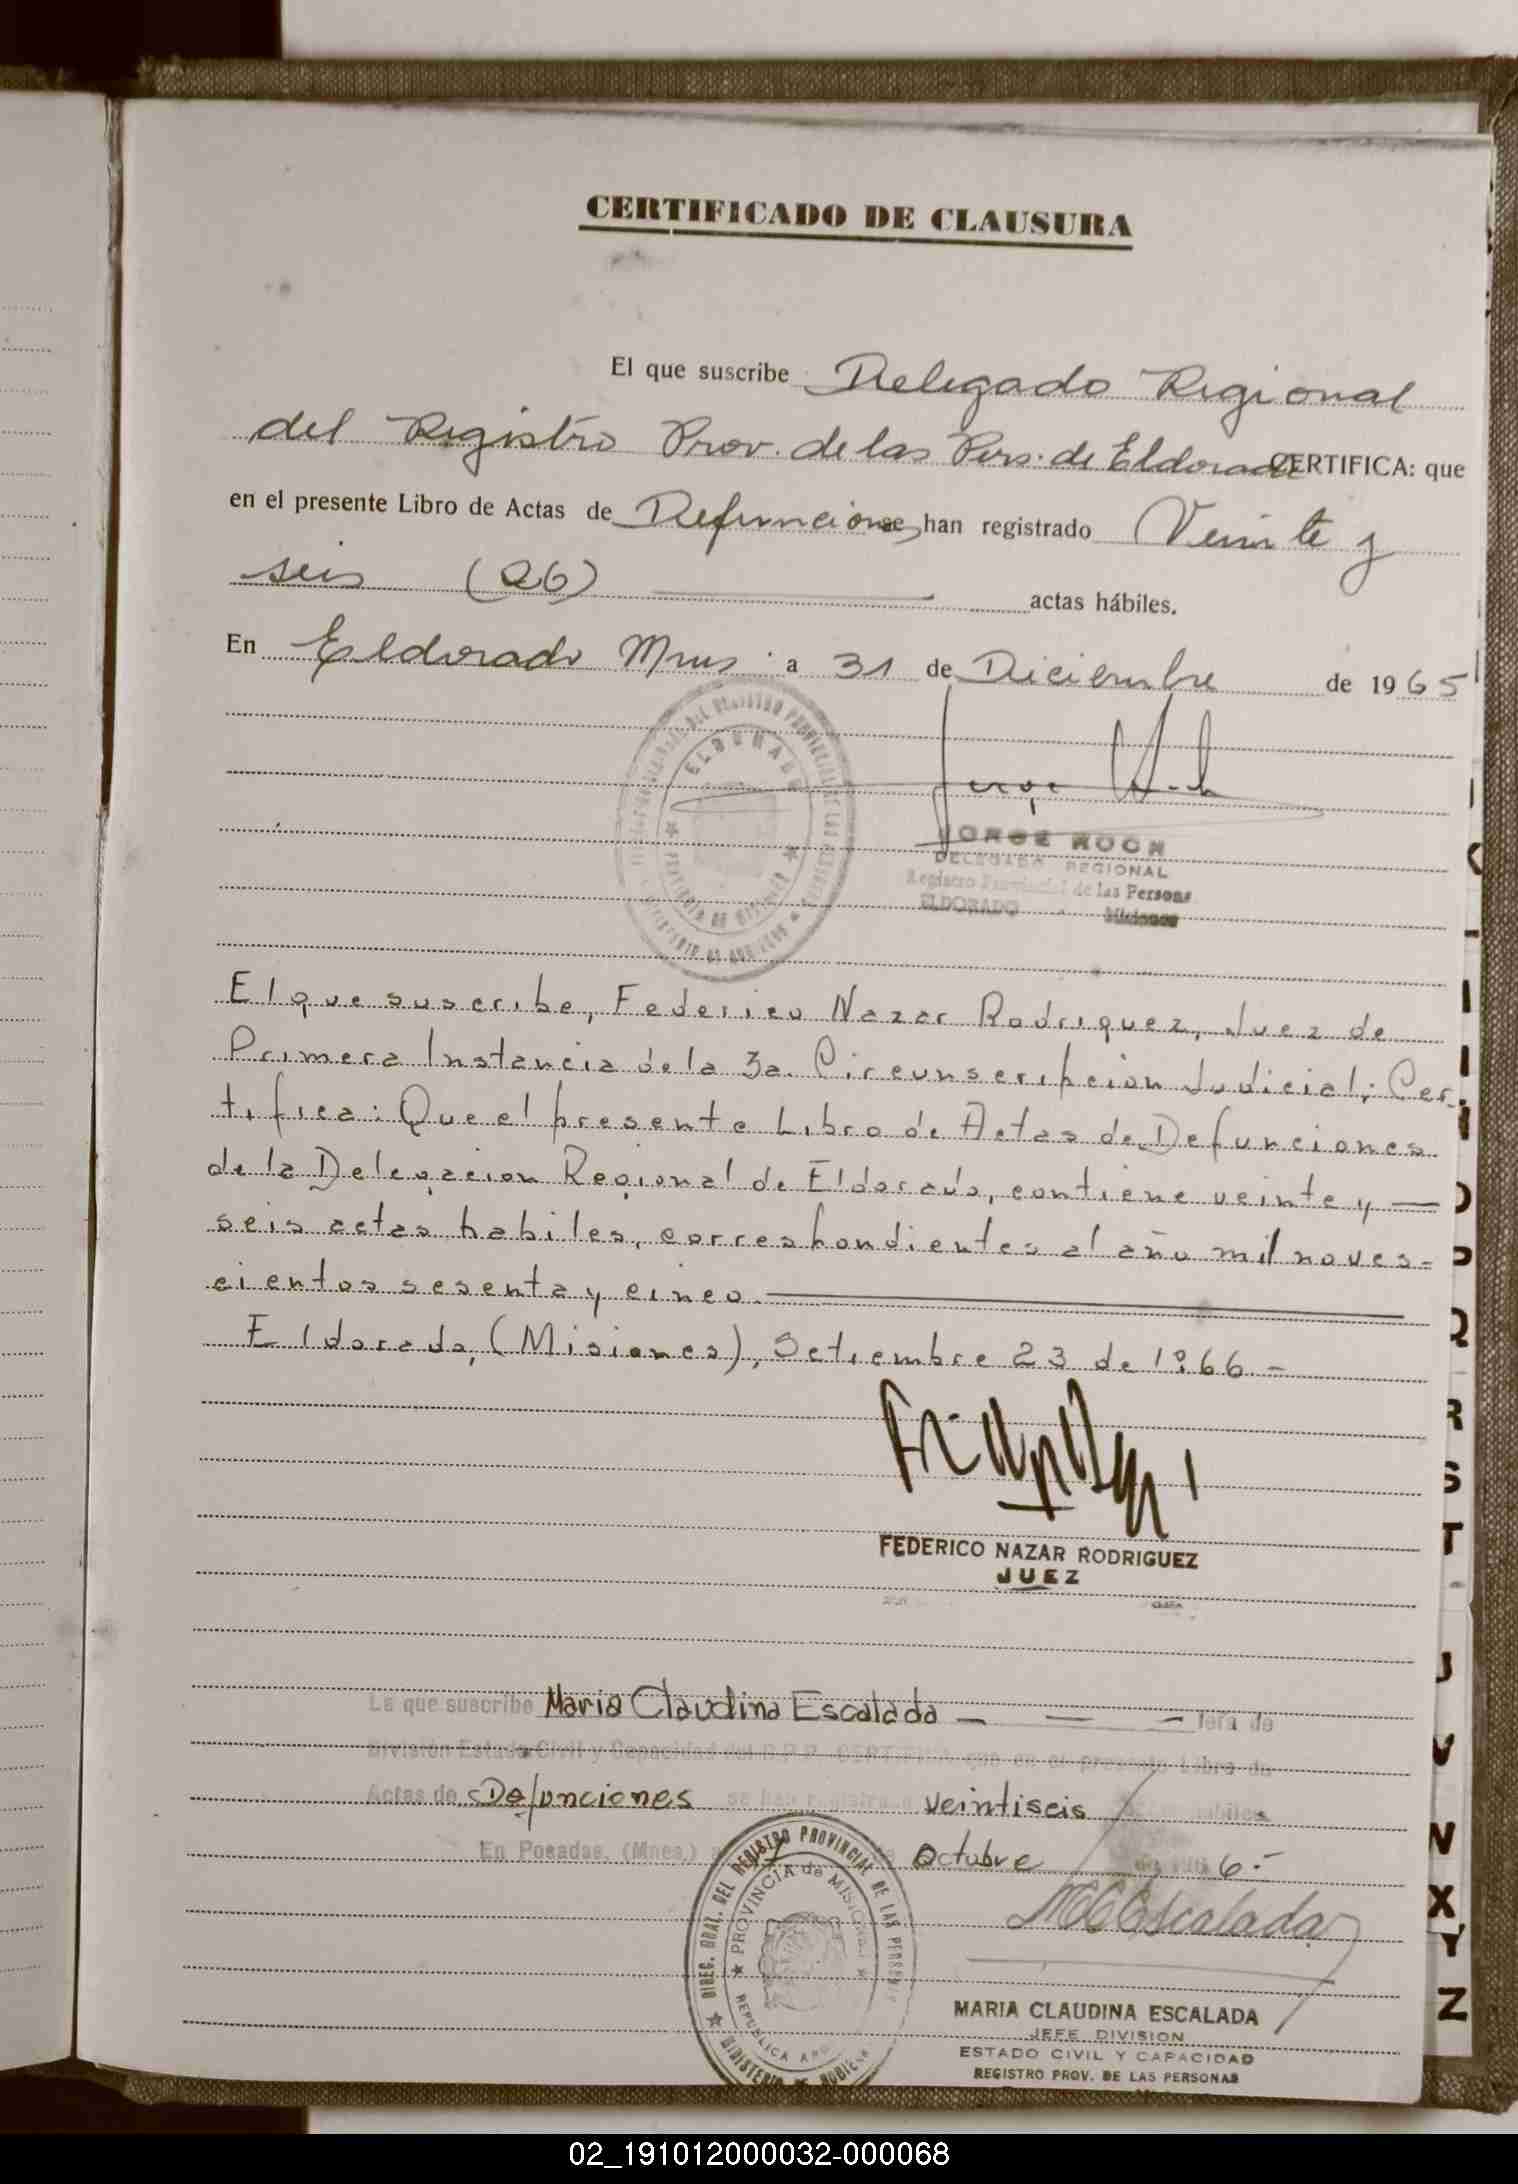 CERTIFICADO DE CLAUSURA
El que suscribe Delegado Regional
del Registro Prov. de las Pers. de Eldorado CERTIFICA: que
en el presente Libro de Actas de Defunciones se han registrado Veinte y
seis (26) actas hábiles.
En Eldorado Mnes. a 31 de Diciembre de 1965
ELDORADO
PROVINCIA DE MISIONES
JORGE KOCH
DELEGADO REGIONAL
Registro Provincial de las Personas
ELDORADO - Misiones
El que suscribe, Federico Nazar Rodriguez, Juez de
Primera Instancia de la 3a. Circunscripcion Judicial; Cer-
tifica: Que el presente Libro de Actas de Defunciones
de la Delegacion Regional de Eldorado, contiene veinte y —
seis actas habiles, correspondientes al año mil noves-
cientos sesenta y cinco.
Eldorado, (Misiones), Setiembre 23 de 1966.-
FEDERICO NAZAR RODRIGUEZ
JUEZ
La que suscribe Maria Claudina Escalada — — — Jefa de
División Estado Civil y Capacidad del R.P.P. CERTIFICA que en el presente Libro de
Actas de Defunciones se han registrado veintiseis actas habiles
En Posadas, (Mnes.) a 7 de Octubre de 1966.-
MCEscalada
DIREC. GRAL. DEL REGISTRO PROVINCIAL DE LAS PERSONAS
PROVINCIA de MISIONES
REPUBLICA ARG
MINISTERIO DE GOBIERNO
MARIA CLAUDINA ESCALADA
JEFE DIVISION
ESTADO CIVIL Y CAPACIDAD
REGISTRO PROV. DE LAS PERSONAS
O
P
Q
R
S
T
U
V
N
X
Y
Z
02_191012000032-000068